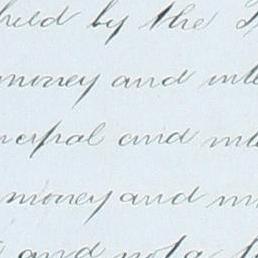 held by the
money and inte
ncipal and inte
money and in
and not a